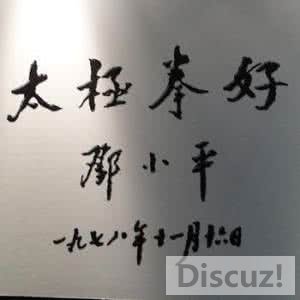 太极拳好
邓小平
一九七八年十一月十六日
Discuz!